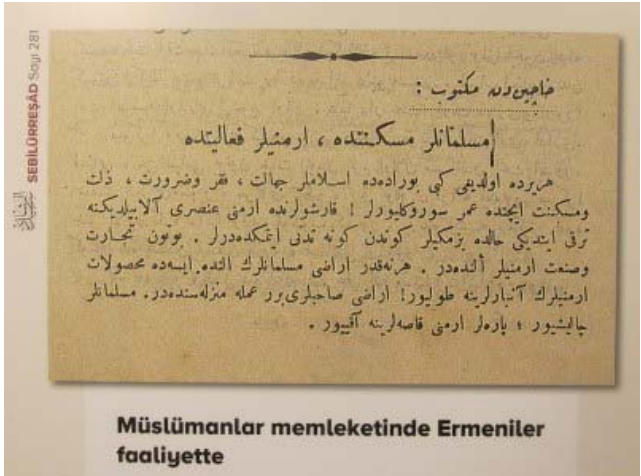 SEBİLÜRREŞÂD Sayı 281
خاچین‌دن مكتوب :
مسلمانلر مسكنتده ، ارمنیلر فعالیتده
هریرده اولدیغی كبی بوراده‌ده اسلاملر جهالت ، فقر وضرورت ، ذلت
ومسكنت ایچنده عمر سوروكلیورلر ! قارشولرنده ارمنی عنصری آلابیلدیكنه
ترقی ایتدیكی حالده بزمكیلر كوندن كونه تدنی ایتمكده‌درلر . بوتون تجارت
وصنعت ارمنیلر ألنده‌در . هرنه‌قدر اراضی مسلمانلرك ألنده ایسه‌ده محصولات
ارمنیلرك آنبارلرینه طولیور! اراضی صاحبلری برر عمله منزله‌سنده‌در. مسلمانلر
چالیشیور ؛ پاره‌لر ارمنی قاصه‌لرینه آقییور .
Müslümanlar memleketinde Ermeniler
faaliyette